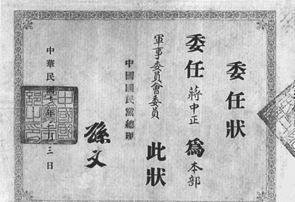 委任狀
委任蔣中正為本部
軍事委員會委員
此狀
中國國民黨總理
孫文
中華民國
三日